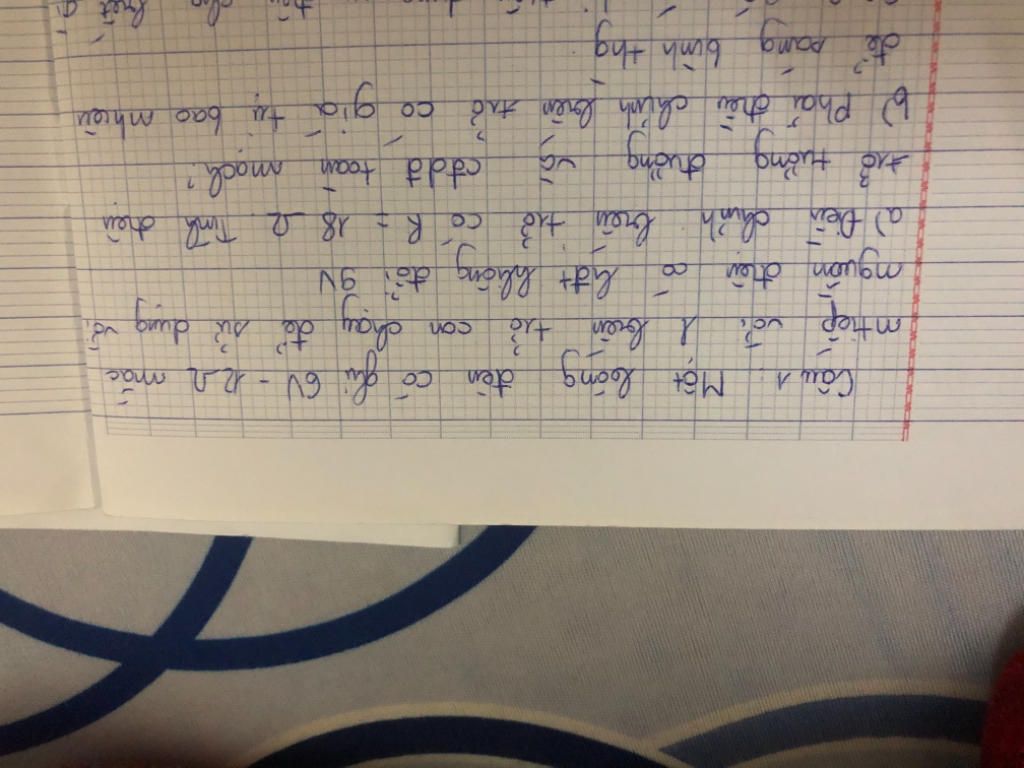 Câu 1: Một bóng đèn có ghi 6V - 12Ω mắc
ntiếp với 1 biến trở con chạy để sử dụng với
nguồn điện có hđt không đổi 9V
a) Điều chỉnh biến trở có R = 18 Ω Tính điện
trở tương đương và cđdđ toàn mạch?
b) Phải điều chỉnh biến trở có giá trị bao nhiêu
để sáng bình thg